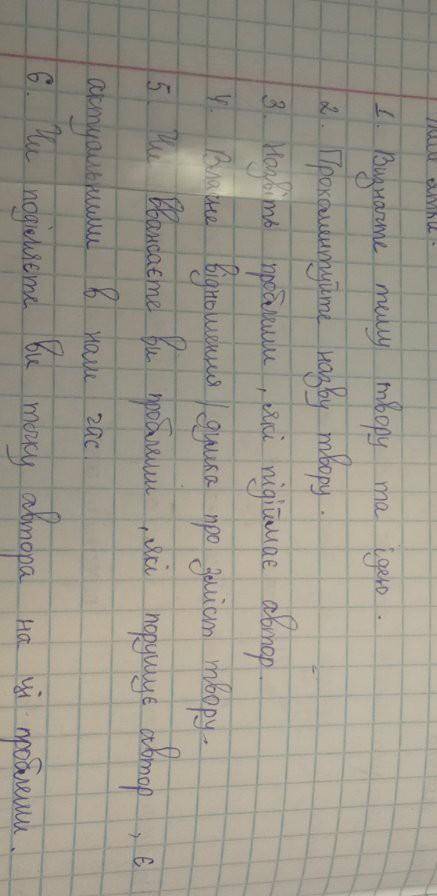 1. Визначте тему твору та ідею.
2. Прокоментуйте назву твору.
3. Назвіть проблеми, які підіймає автор.
4. Власне відношення/думка про зміст твору.
5. Чи вважаєте ви проблеми, які порушує автор, є
актуальними в наш час.
6. Чи поділяєте ви точку автора на ці проблеми.